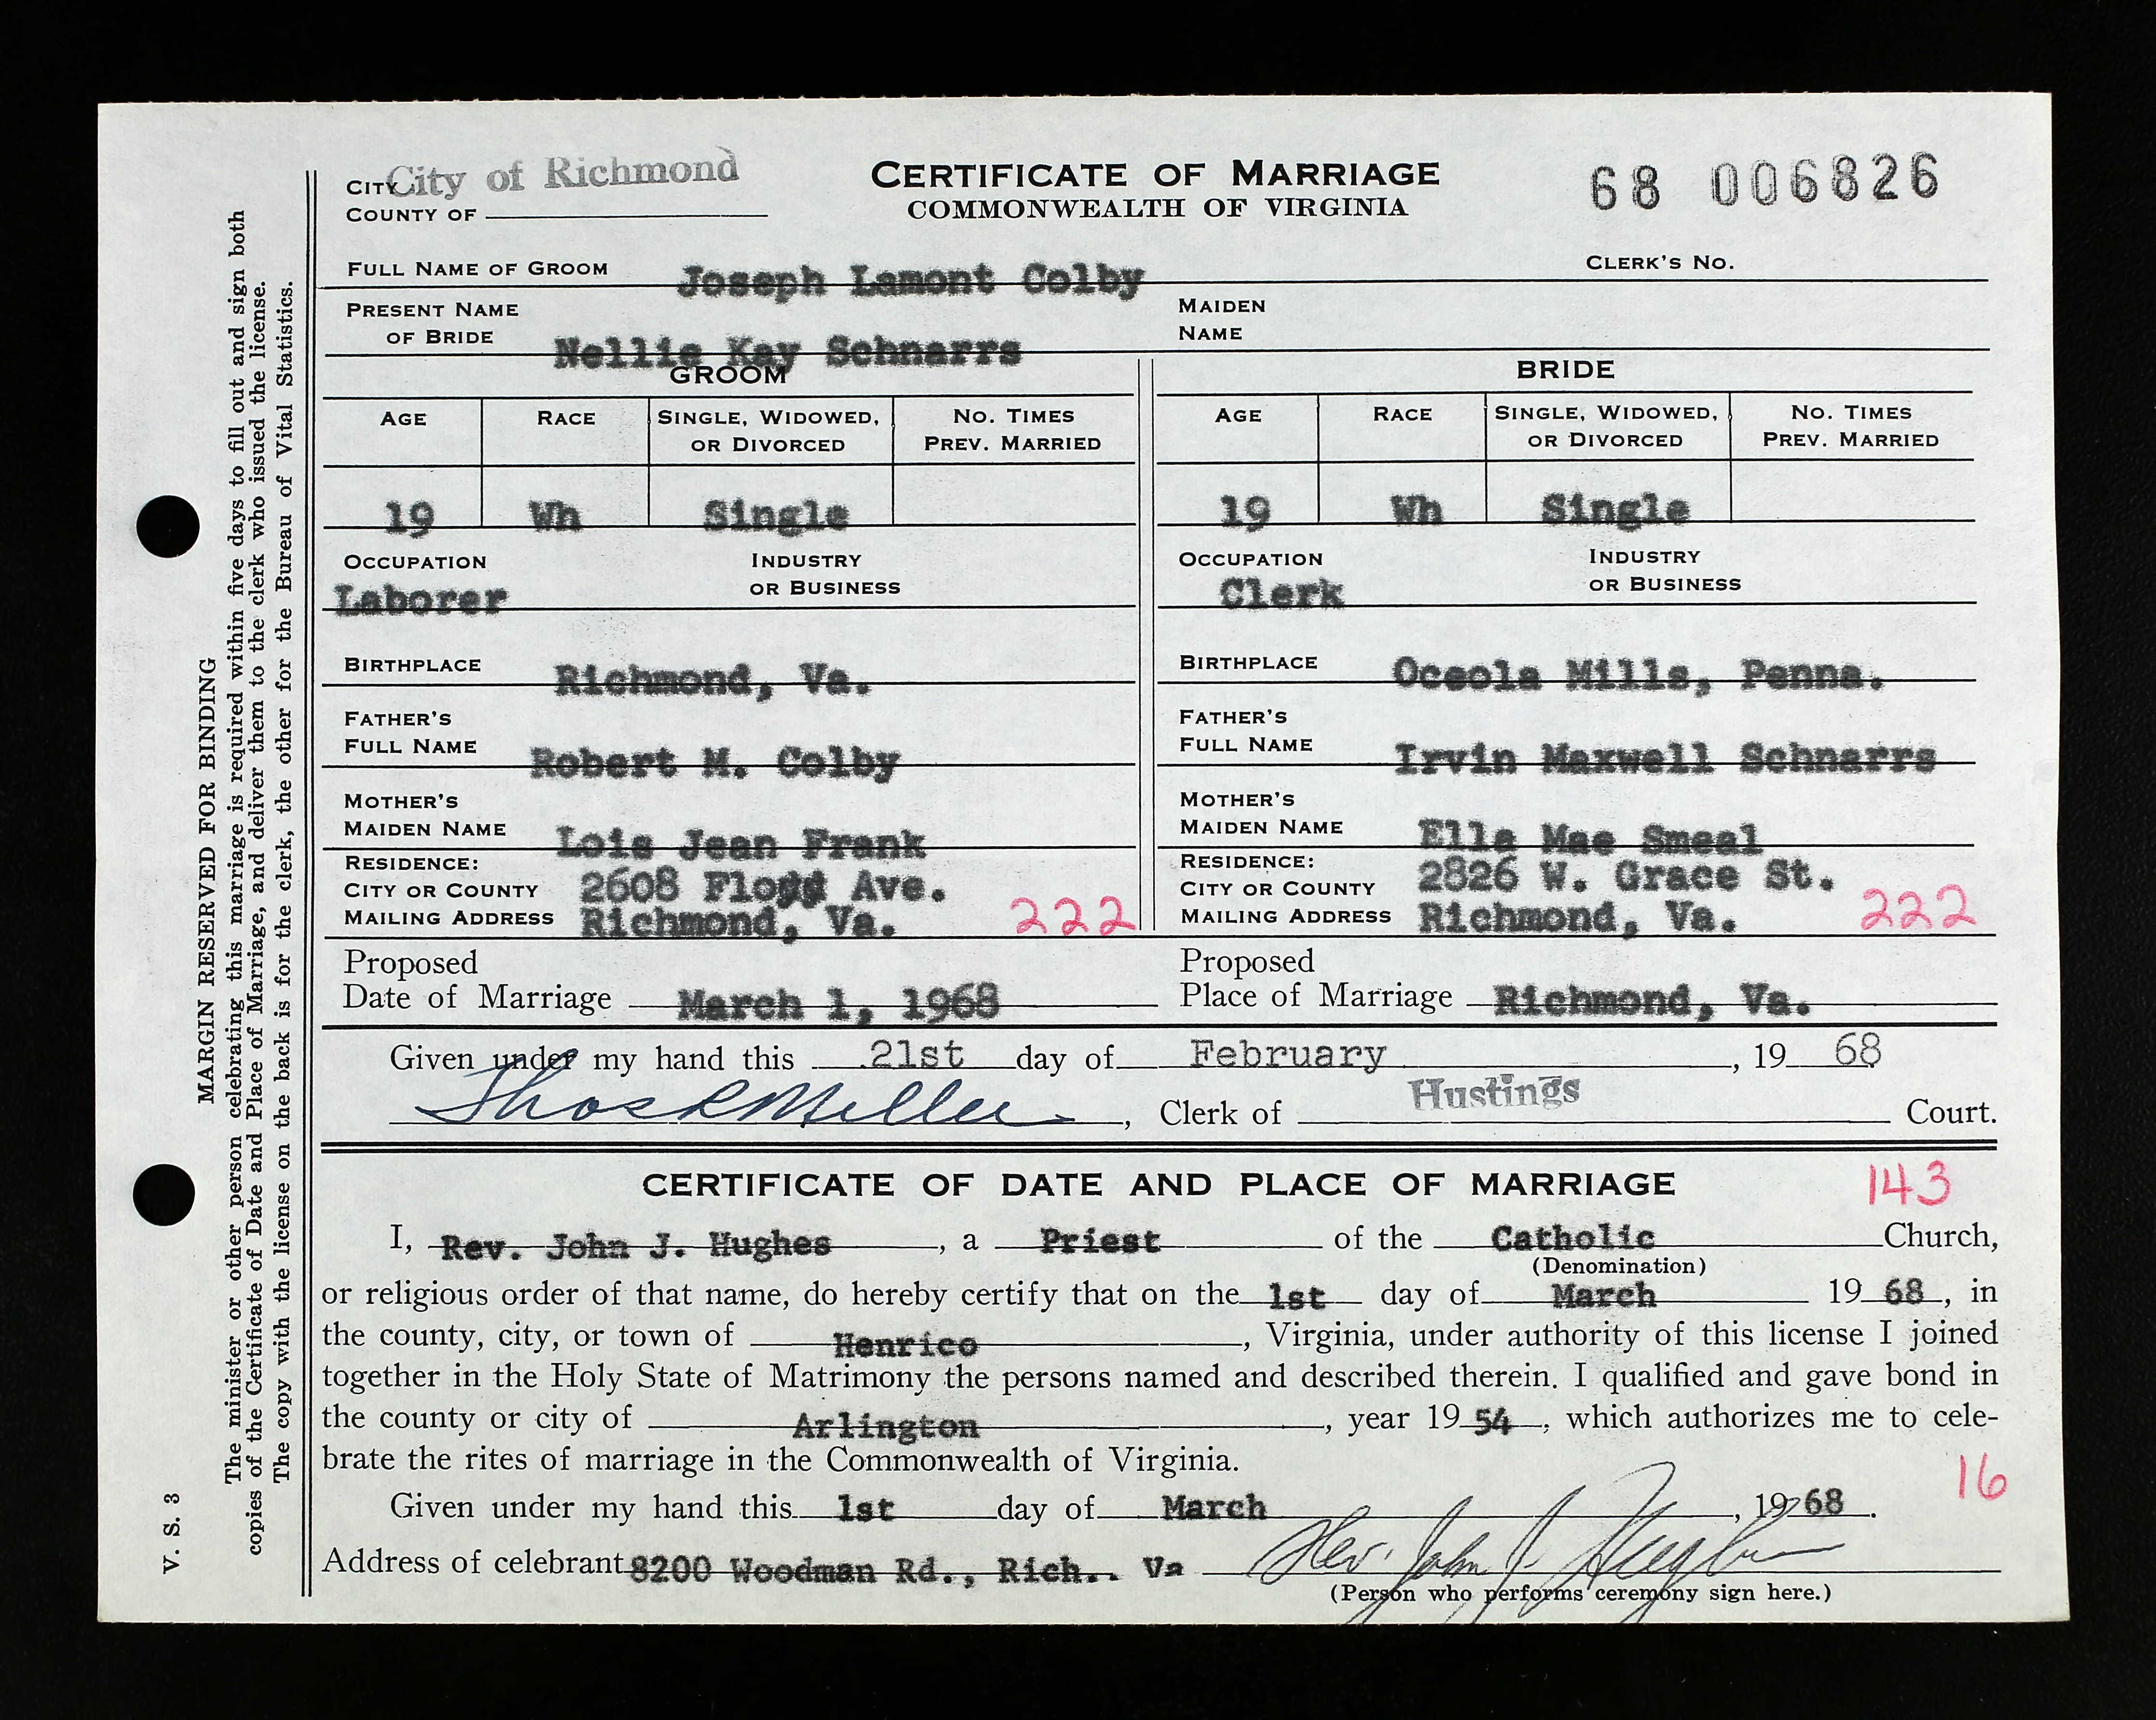 City of Richmond
CITY
COUNTY OF
CERTIFICATE OF MARRIAGE
COMMONWEALTH OF VIRGINIA
68 006826
FULL NAME OF GROOM Joseph Lamont Colby CLERK'S NO.
PRESENT NAME OF BRIDE Nellie Kay Schnarrs MAIDEN NAME
GROOM BRIDE
AGE RACE SINGLE, WIDOWED, OR DIVORCED NO. TIMES PREV. MARRIED AGE RACE SINGLE, WIDOWED, OR DIVORCED NO. TIMES PREV. MARRIED
19 Wh Single 19 Wh Single
OCCUPATION Laborer INDUSTRY OR BUSINESS OCCUPATION Clerk INDUSTRY OR BUSINESS
BIRTHPLACE Richmond, Va. BIRTHPLACE Oceola Mills, Penna.
FATHER'S FULL NAME Robert M. Colby FATHER'S FULL NAME Irvin Maxwell Schnarrs
MOTHER'S MAIDEN NAME Lois Jean Frank MOTHER'S MAIDEN NAME Ella Mae Smeal
RESIDENCE: RESIDENCE:
CITY OR COUNTY 2608 Ave. CITY OR COUNTY 2826 W. Grace St.
MAILING ADDRESS Richmond, Va. 222 MAILING ADDRESS Richmond, Va. 222
Proposed Date of Marriage March 1, 1968 Proposed Place of Marriage Richmond, Va.
Given under my hand this 21st day of February, 19 68
Thos R Miller, Clerk of Hustings Court.
CERTIFICATE OF DATE AND PLACE OF MARRIAGE 143
I, Rev. John J. Hughes, a Priest of the Catholic Church,
(Denomination)
or religious order of that name, do hereby certify that on the 1st day of March 19 68, in
the county, city, or town of Henrico, Virginia, under authority of this license I joined
together in the Holy State of Matrimony the persons named and described therein. I qualified and gave bond in
the county or city of Arlington, year 19 54, which authorizes me to cele-
brate the rites of marriage in the Commonwealth of Virginia.
16
Given under my hand this 1st day of March, 19 68.
Address of celebrant 8200 Woodman Rd., Rich.. Va Rev. John J. Hughes
(Person who performs ceremony sign here.)
MARGIN RESERVED FOR BINDING
The minister or other person celebrating this marriage is required within five days to fill out and sign both
copies of the Certificate of Date and Place of Marriage, and deliver them to the clerk who issued the license.
The copy with the license on the back is for the clerk, the other for the Bureau of Vital Statistics.
V. S. 3